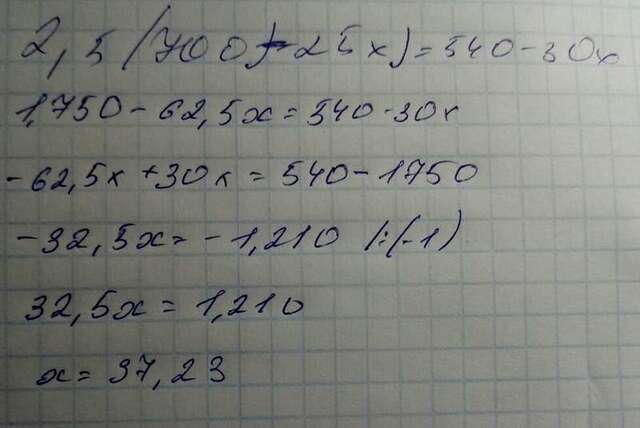 2,5(700-25x)=540-30x
1,750-62,5x=540-30x
-62,5x+30x=540-1750
-32,5x=-1,210 |:(-1)
32,5x=1,210
x=37,23